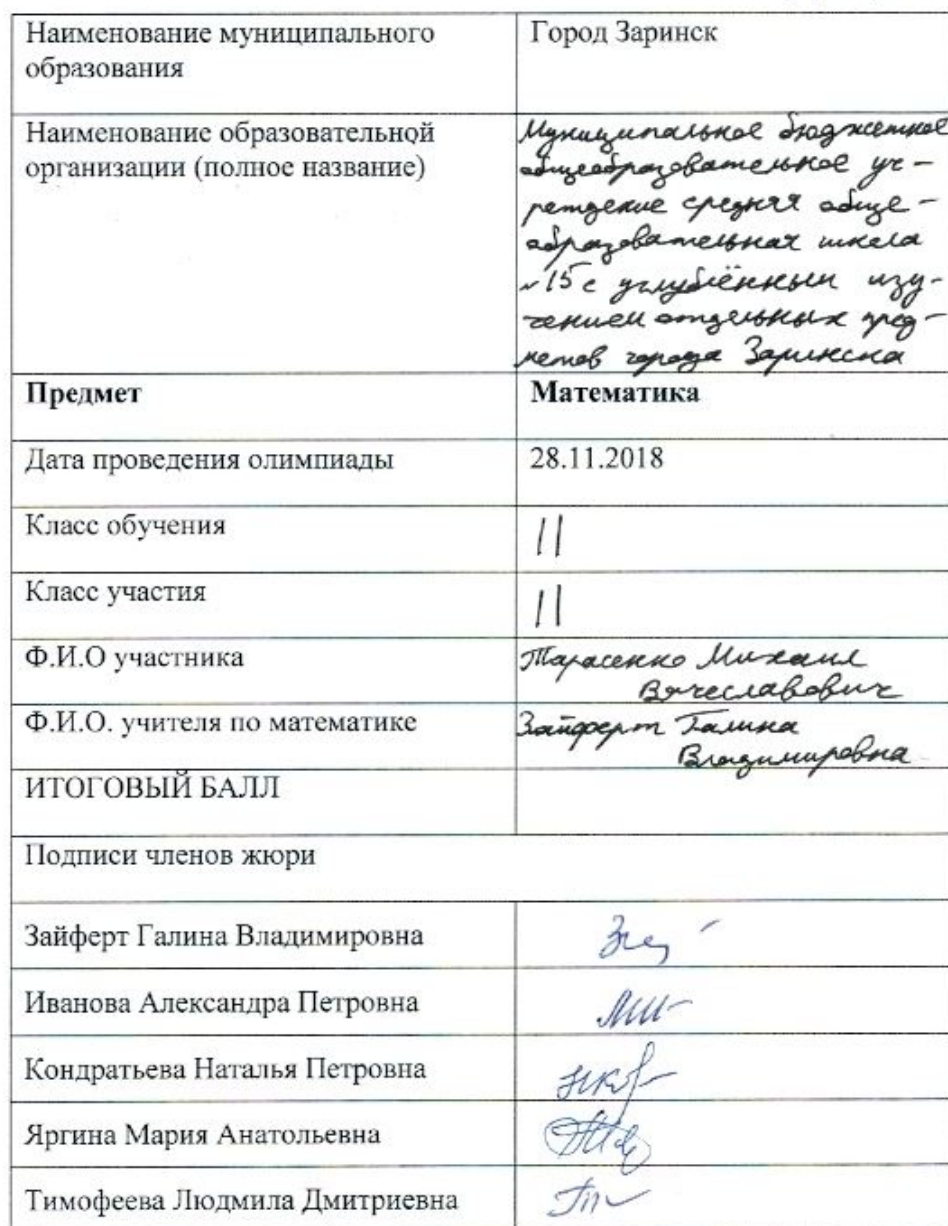 Наименование муниципального
образования
Город Заринск
Наименование образовательной
организации (полное название)
Муниципальное бюджетное
общеобразовательное уч-
реждение средняя обще-
образовательная школа
№15 с углублённым изу-
чением отдельных пред-
метов города Заринска
Предмет
Математика
Дата проведения олимпиады
28.11.2018
Класс обучения
11
Класс участия
11
Ф.И.О участника
Тарасенко Михаил
Вячеславович
Ф.И.О. учителя по математике
Зайферт Галина
Владимировна
ИТОГОВЫЙ БАЛЛ
Подписи членов жюри
Зайферт Галина Владимировна
Иванова Александра Петровна
Кондратьева Наталья Петровна
Яргина Мария Анатольевна
Тимофеева Людмила Дмитриевна